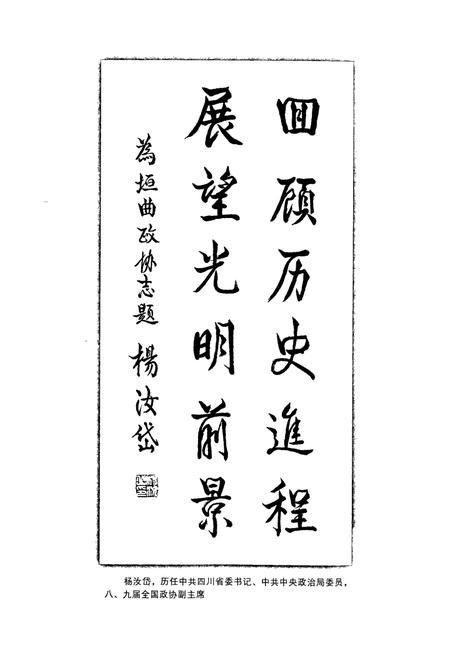 囬顧历史進程
展望光明前景
為垣曲政协志题
楊汝岱
杨汝岱，历任中共四川省委书记、中共中央政治局委员，
八、九届全国政协副主席